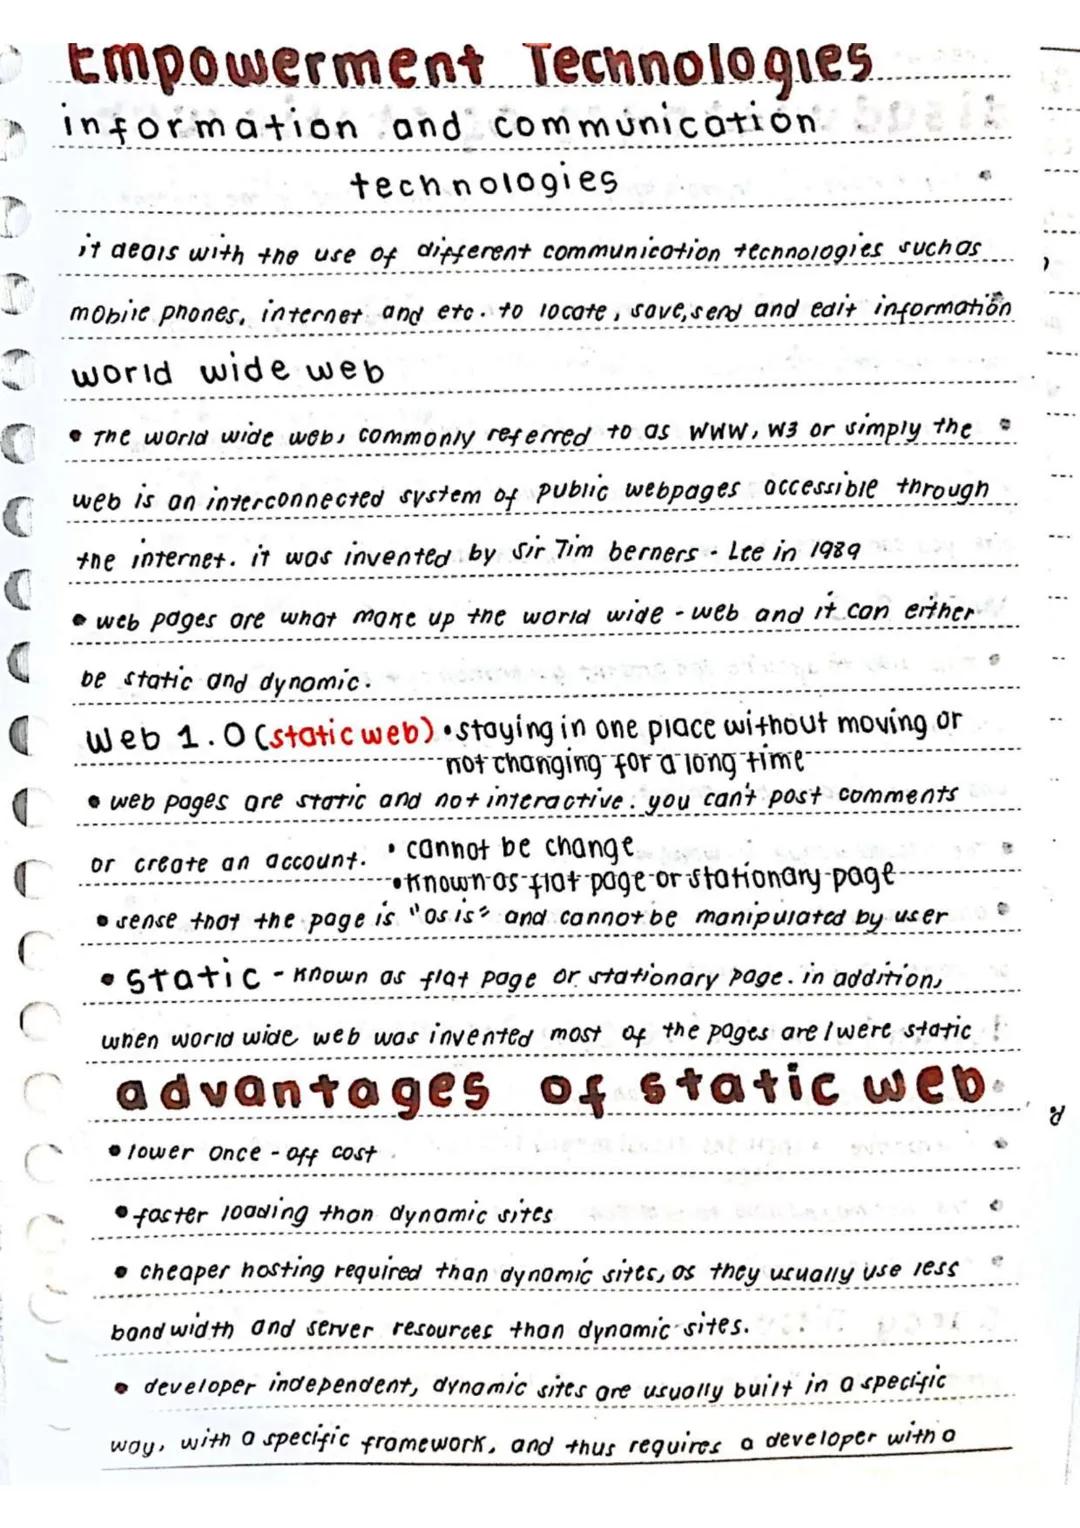 Empowerment Technologies
information and communication
technologies
it deals with the use of different communication technologies such as
mobile phones, internet and etc. to locate, save, send and edit information
world wide web
• The world wide web, commonly referred to as WWW, W3 or simply the
web is an interconnected system of public webpages accessible through
the internet. it was invented by Sir Tim berners - Lee in 1989
• web pages are what make up the world wide - web and it can either
be static and dynamic.
Web 1.0 (static web) • staying in one place without moving or
not changing for a long time
• web pages are static and not interactive. you can't post comments
or create an account. • cannot be change
• Known as flat page or stationary page
• sense that the page is "as is" and cannot be manipulated by user
• Static - Known as flat page or stationary page. in addition,
when world wide web was invented most of the pages are / were static
advantages of static web
• lower once - off cost
• faster loading than dynamic sites
• cheaper hosting required than dynamic sites, as they usually use less
bandwidth and server resources than dynamic sites.
• developer independent, dynamic sites are usually built in a specific
way, with a specific framework, and thus requires a developer with a